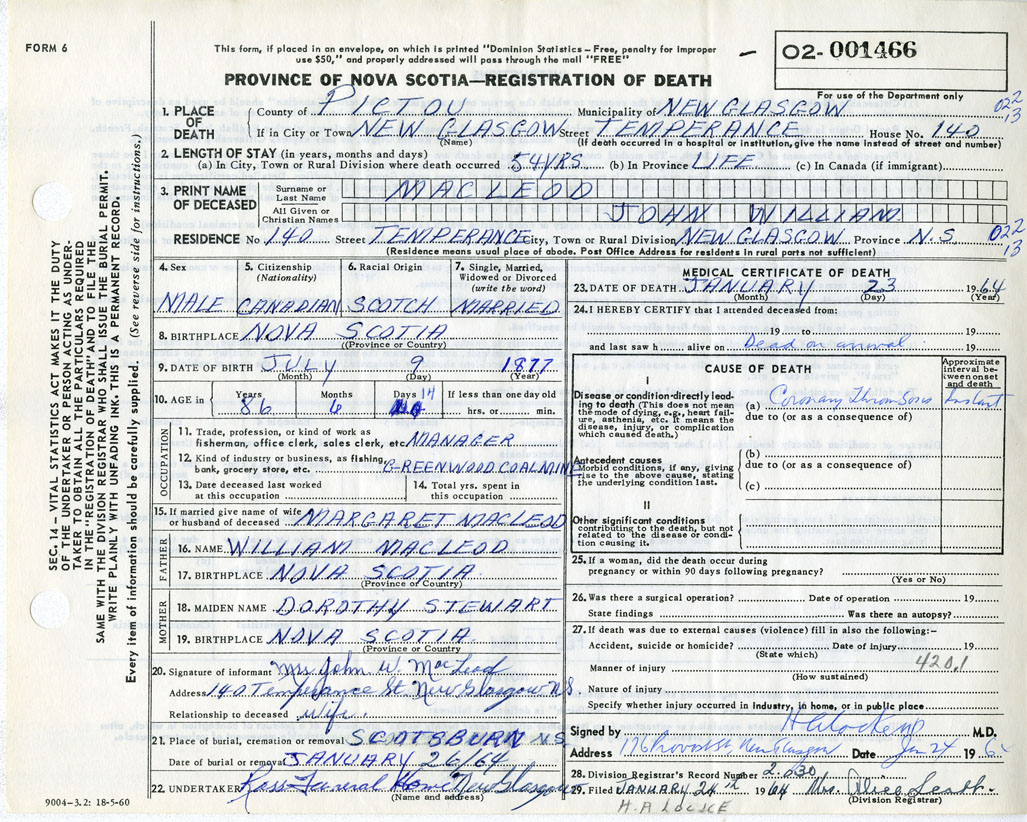 FORM 6
This form, if placed in an envelope, on which is printed "Dominion Statistics – Free, penalty for improper
use $50," and properly addressed will pass through the mail "FREE"
02- 001466
PROVINCE OF NOVA SCOTIA—REGISTRATION OF DEATH
For use of the Department only
1. PLACE OF DEATH
County of PICTOU Municipality of NEW GLASGOW 022
If in City or Town NEW GLASGOW Street TEMPERANCE House No. 140 13
(Name) (If death occurred in a hospital or institution, give the name instead of street and number)
2. LENGTH OF STAY (in years, months and days)
(a) In City, Town or Rural Division where death occurred 54 YRS (b) In Province LIFE (c) In Canada (if immigrant)
3. PRINT NAME OF DECEASED
Surname or Last Name MACLEOD
All Given or Christian Names JOHN WILLIAM
RESIDENCE No 140 Street TEMPERANCE City, Town or Rural Division NEW GLASGOW Province N.S. 022
13
(Residence means usual place of abode. Post Office Address for residents in rural parts not sufficient)
4. Sex 5. Citizenship (Nationality) 6. Racial Origin 7. Single, Married, Widowed or Divorced (write the word)
MALE CANADIAN SCOTCH MARRIED
8. BIRTHPLACE NOVA SCOTIA
(Province or Country)
9. DATE OF BIRTH JULY 9 1877
(Month) (Day) (Year)
10. AGE in Years Months Days 14 If less than one day old
86 6 hrs. or min.
OCCUPATION
11. Trade, profession, or kind of work as
fisherman, office clerk, sales clerk, etc. MANAGER
12. Kind of industry or business, as fishing,
bank, grocery store, etc. GREENWOOD COAL MINE
13. Date deceased last worked
at this occupation
14. Total yrs. spent in
this occupation
15. If married give name of wife
or husband of deceased MARGARET MACLEOD
FATHER
16. NAME WILLIAM MACLEOD
17. BIRTHPLACE NOVA SCOTIA
(Province or Country)
MOTHER
18. MAIDEN NAME DOROTHY STEWART
19. BIRTHPLACE NOVA SCOTIA
(Province or Country)
20. Signature of informant Mrs John W. MacLeod
Address 140 Temperance St. New Glasgow N.S.
Relationship to deceased wife.
21. Place of burial, cremation or removal SCOTSBURN N.S
Date of burial or removal JANUARY 26/64
22. UNDERTAKER Ross Funeral Home New Glasgow
(Name and address)
9004-3.2: 18-5-60
MEDICAL CERTIFICATE OF DEATH
23. DATE OF DEATH JANUARY 23 1964
(Month) (Day) (Year)
24. I HEREBY CERTIFY that I attended deceased from:
19 to 19
and last saw h alive on Dead on arrival 19
CAUSE OF DEATH
Approximate interval between onset and death
I
Disease or condition directly leading to death (This does not mean the mode of dying, e.g., heart failure, asthenia, etc. It means the disease, injury, or complication which caused death.)
(a) Coronary Thrombosis Instant
due to (or as a consequence of)
Antecedent causes
Morbid conditions, if any, giving rise to the above cause, stating the underlying condition last.
(b)
due to (or as a consequence of)
(c)
II
Other significant conditions
contributing to the death, but not related to the disease or condition causing it.
25. If a woman, did the death occur during
pregnancy or within 90 days following pregnancy?
(Yes or No)
26. Was there a surgical operation? Date of operation 19
State findings Was there an autopsy?
27. If death was due to external causes (violence) fill in also the following:–
Accident, suicide or homicide? Date of injury 19
(State which) 420.1
Manner of injury
(How sustained)
Nature of injury
Specify whether injury occurred in industry, in home, or in public place
Signed by M.D.
Address 176 Provost St New Glasgow Date Jan 24 1964
28. Division Registrar's Record Number 2.030
29. Filed JANUARY 24th 1964 Mrs. Alice
(Division Registrar)
H.A LOCKE
SEC. 14 – VITAL STATISTICS ACT MAKES IT THE DUTY
OF THE UNDERTAKER OR PERSON ACTING AS UNDER-
TAKER TO OBTAIN ALL THE PARTICULARS REQUIRED
IN THE "REGISTRATION OF DEATH" AND TO FILE THE
SAME WITH THE DIVISION REGISTRAR WHO SHALL ISSUE THE BURIAL PERMIT.
WRITE PLAINLY WITH UNFADING INK. THIS IS A PERMANENT RECORD.
Every item of information should be carefully supplied. (See reverse side for instructions.)